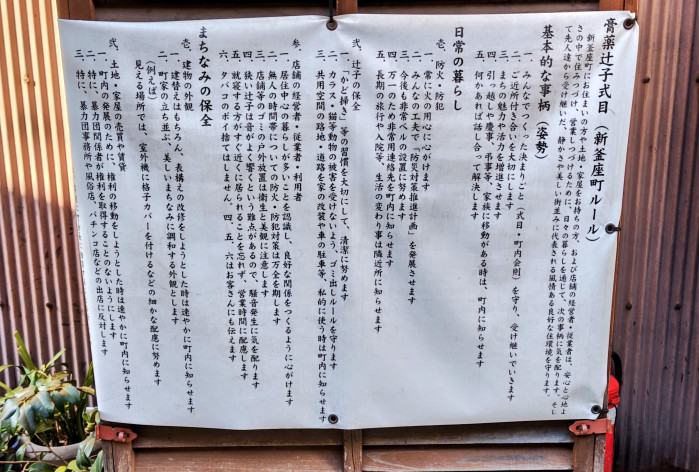 膏薬辻子式目(新釜座町ルール)
新釜座町にお住まいの方や土地・家屋をお持ちの方、および店舗の経営者・従業者は、安心と心地よ
さの中で住みつづけ、営業しつづけるために、日々の暮らしを通じて、次の事柄に気を配ります。そし
て先人達から受け継いだ、静かさや美しい街並みに代表される風情ある良好な住環境を守ります。
新釜座町
基本的な事柄(姿勢)
一、みんなでつくった決まりごと(式目・町内会則)を守り、受け継いでいきます
二、ご近所付き合いを大切にします
三、まちの魅力や活力を増進させます
四、引っ越しや慶事、弔事等、家族に移動がある時は、町内に知らせます
五、何かあれば話し合って解決します
日常の暮らし
壱、防火・防犯
一、常に火の用心に心がけます
二、みんなの工夫で「防災対策推進計画」を発展させます
三、今後も非常ベルの設置に努めます
四、万一のため非常用連絡先を町内に知らせます
五、長期の旅行や入院等、生活の変わり事は隣近所に知らせます
弐、辻子の保全
一、“かど掃き”等の習慣を大切にして、清潔に努めます
二、カラス・猫等動物の被害を受けないよう、ゴミ出しルールを守ります
三、共用空間の路地・道路を家の改装や車の駐車等、私的に使う時は町内に知らせます
参、店舗の経営者・従業者・利用者
一、居住中心の暮らしが多いことを認識し、良好な関係をつくるように心がけます
二、無人の時間帯についての防火・防犯対策は万全を期します
三、店舗等のゴミの戸外放置は衛生と美観に注意します
四、狭い辻子は音がよく響くという難点があるので、騒音発生に気を配ります
五、就寝する方がすぐ近くに居られることを忘れず、営業時間に配慮します
六、タバコのポイ捨てはしません。四、五、六はお客さんにも伝えます
まちなみの保全
壱、建物の外観
一、建替えはもちろん、表構えの改修をしようとした時は速やかに町内に知らせます
二、町家の立ち並ぶ、美しいまちなみに調和する外観とします
(例えば)
見える場所では、室外機に格子カバーを付けるなどの細かな配慮に努めます
弐、土地・家屋の売買や賃貸
一、町内の発展のために、権利の移動をしようとした時は速やかに町内に知らせます
二、特に、暴力団関係者が権利を取得することのないようにします
三、特に、暴力団事務所や風俗店、パチンコ店などの出店に反対します